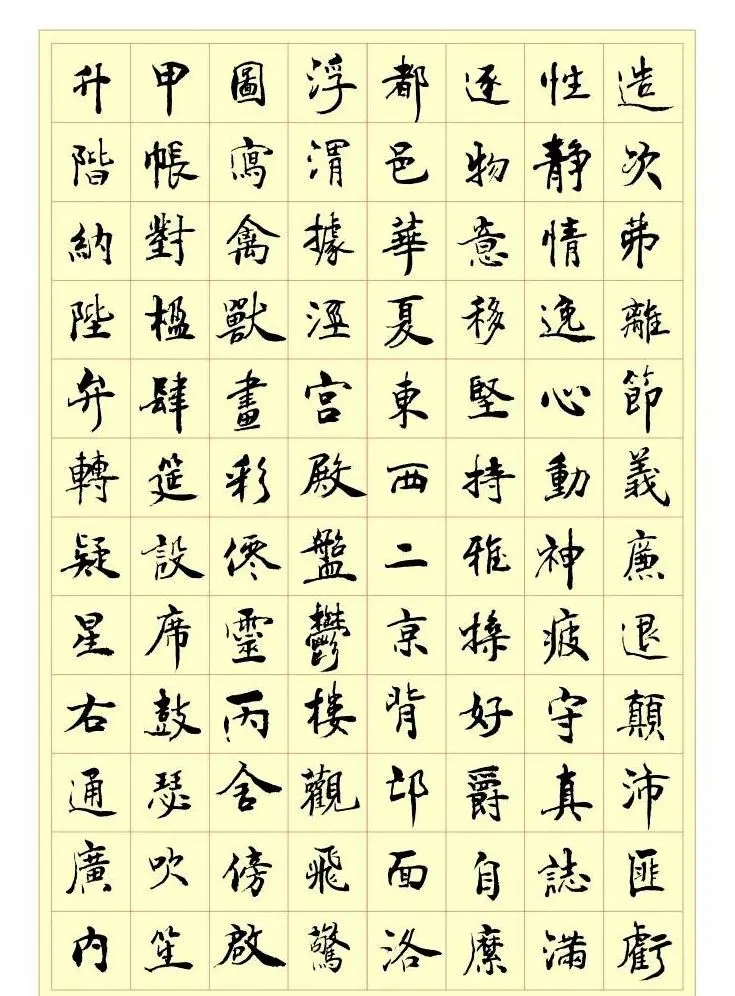 造次弗離節義廉退顛沛匪虧
性静情逸心動神疲守真誌滿
逐物意移堅持雅操好爵自縻
都邑華夏東西二京背邙面洛
浮渭據涇宫殿盤鬱楼觀飛驚
圖寫禽獸畫彩僊靈丙舍傍啟
甲帳對楹肆筵設席鼓瑟吹笙
升階納陛弁轉疑星右通廣内